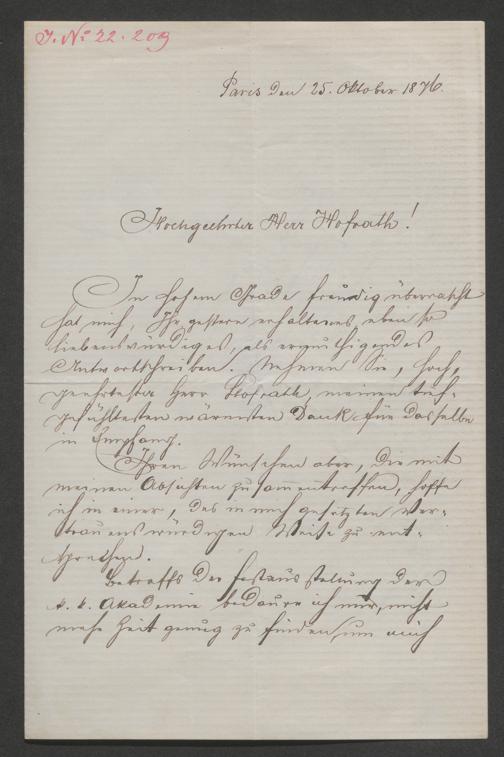 J. No 22.209
Paris den 25. Oktober 1876.
Hochgeehrter Herr Hofrath!
In hohem Grade freudig überrascht
hat mich, Ihr gestern erhaltenes eben so
liebenswürdiges, als ermuthigendes
Antwortschreiben. Nehmen Sie, hoch-
geehrtester Herr Hofrath, meinen tief-
gefühltesten wärmsten Dank für dasselbe
in Empfang.
Ihren Wünschen aber, die mit
meinen Absichten zusammentreffen, hoffe
ich in einer, des in mich gesetzten Ver-
trauens würdigen Weise zu ent-
sprechen.
Betreffs der Festausstellung der
k. k. Akademie bedaure ich nur, nicht
mehr Zeit genug zu finden, um mich